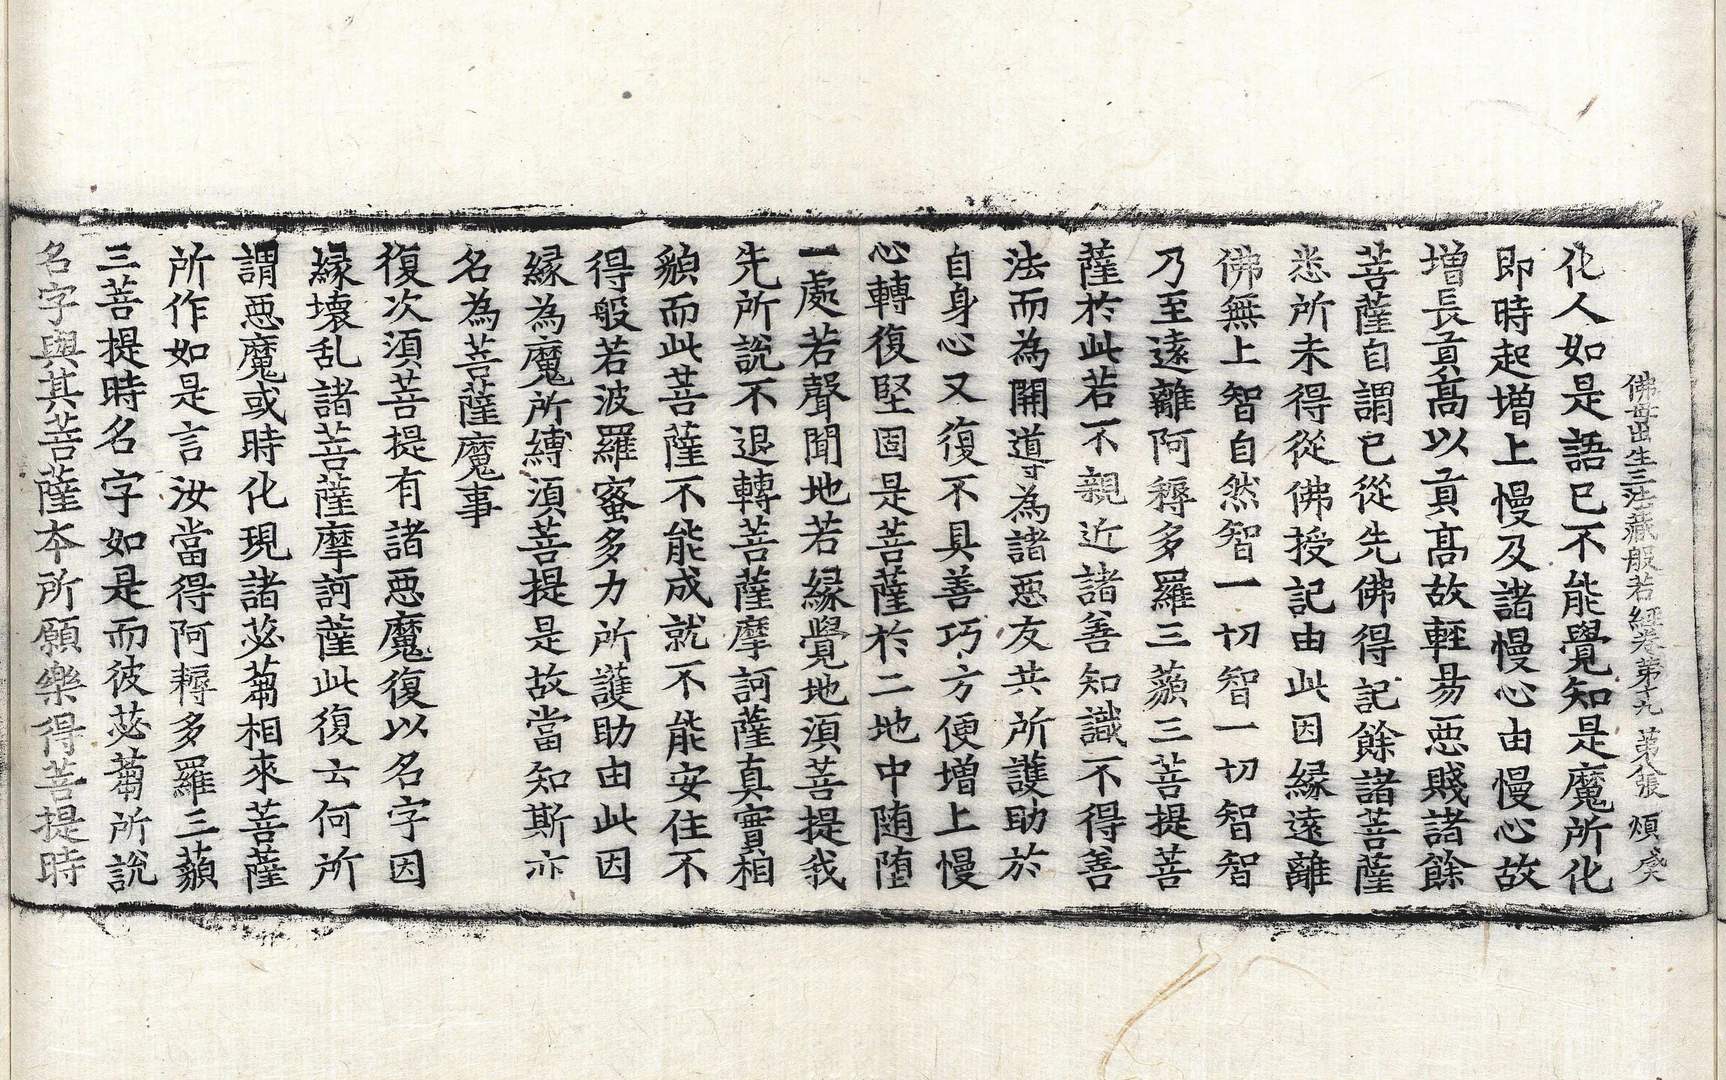 佛母出生三法藏般若經卷第十九　第八張　煩癸
化人如是語已不能覺知是魔所化
即時起增上慢及諸慢心由慢心故
增長貢高以貢高故輕易惡賤諸餘
菩薩自謂已從先佛得記餘諸菩薩
悉所未得從佛授記由此因緣遠離
佛無上智自然智一切智一切智智
乃至遠離阿耨多羅三藐三菩提菩
薩於此若不親近諸善知識不得善
法而為開導為諸惡友共所護助於
自身心又復不具善巧方便增上慢
心轉復堅固是菩薩於二地中随堕
一處若聲聞地若緣覺地湏菩提我
先所說不退轉菩薩摩訶薩真實相
貌而此菩薩不能成就不能安住不
得般若波羅蜜多力所護助由此因
緣為魔所縛湏菩提是故當知斯亦
名為菩薩魔事
復次湏菩提有諸惡魔復以名字因
緣壞乱諸菩薩摩訶薩此復云何所
謂惡魔或時化現諸苾蒭相來菩薩
所作如是言汝當得阿耨多羅三藐
三菩提時名字如是而彼苾蒭所說
名字與其菩薩本所願樂得菩提時